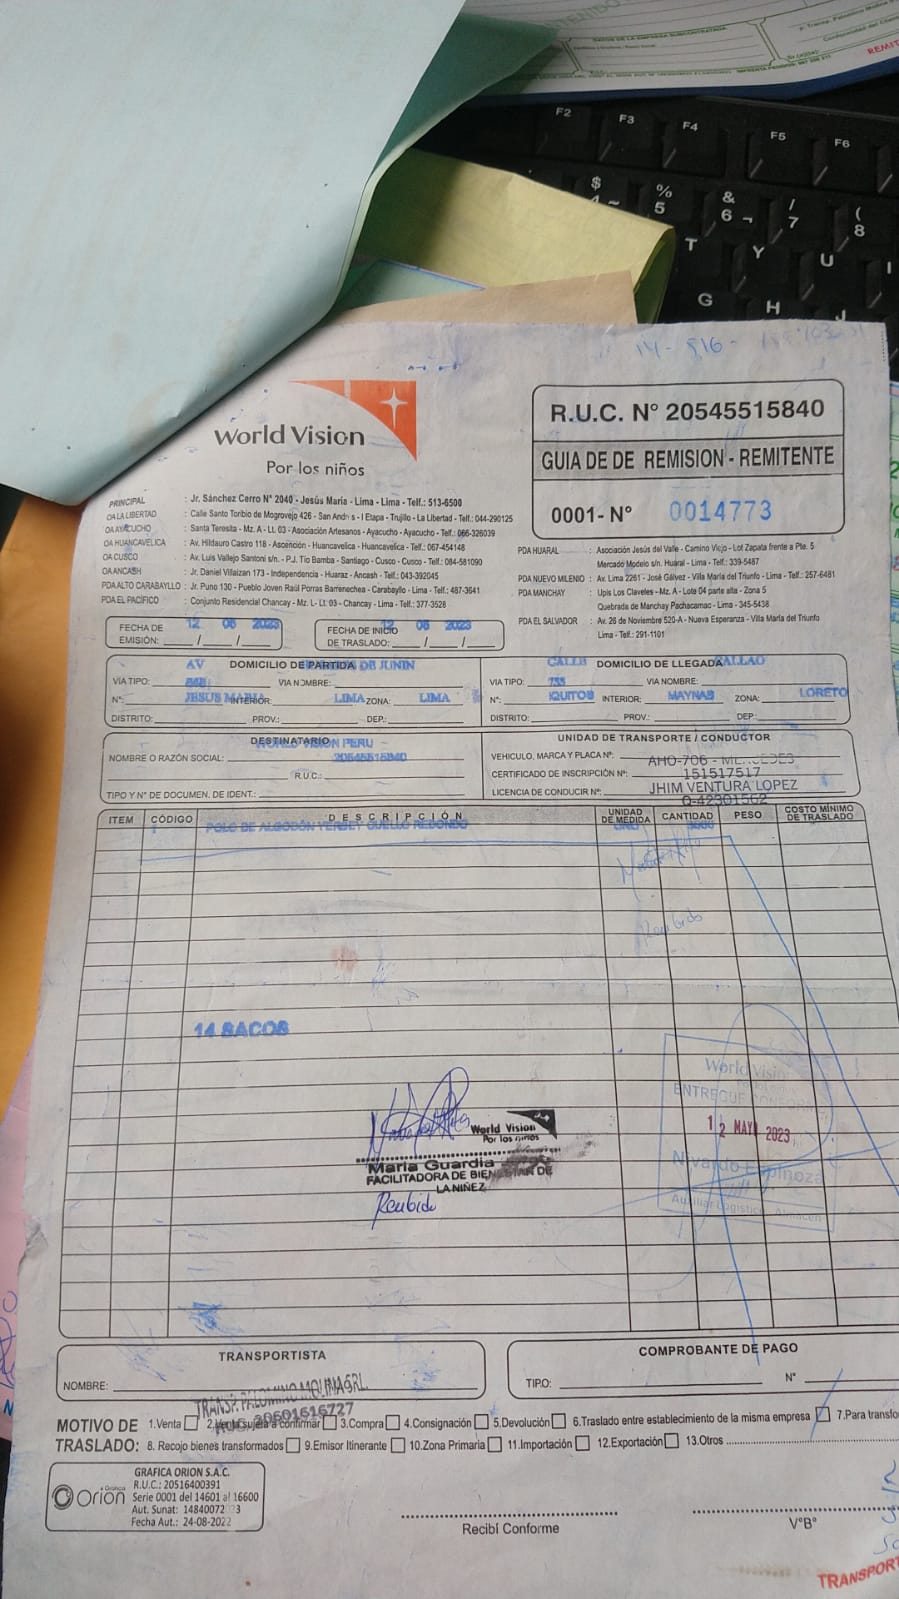 DATOS DE LA EMPRESA SUBCONTRATADA
REMIT
F2 F3 F4 F5 F6
$ % & / (
4 ~ 5 6 ¬ 7 8
T Y U I
G H J
14 - 816 -
World Vision
Por los niños
R.U.C. N° 20545515840
GUIA DE DE REMISION - REMITENTE
0001- N° 0014773
PRINCIPAL : Jr. Sánchez Cerro N° 2040 - Jesús María - Lima - Lima - Telf.: 513-6500
OA LA LIBERTAD : Calle Santo Toribio de Mogrovejo 426 - San Andrés - I Etapa - Trujillo - La Libertad - Telf.: 044-290125
OA AYACUCHO : Santa Teresita - Mz. A - Lt. 03 - Asociación Artesanos - Ayacucho - Ayacucho - Telf.: 066-326039
OA HUANCAVELICA : Av. Hildauro Castro 118 - Ascención - Huancavelica - Huancavelica - Telf.: 067-454148
OA CUSCO : Av. Luis Vallejo Santoni s/n. - P.J. Tio Bamba - Santiago - Cusco - Cusco - Telf.: 084-581090
OA ANCASH : Jr. Daniel Villaizan 173 - Independencia - Huaraz - Ancash - Telf.: 043-392045
PDA ALTO CARABAYLLO : Jr. Puno 130 - Pueblo Joven Raúl Porras Barrenechea - Carabayllo - Lima - Telf.: 487-3641
PDA EL PACÍFICO : Conjunto Residencial Chancay - Mz. L - Lt. 03 - Chancay - Lima - Telf.: 377-3528
PDA HUARAL : Asociación Jesús del Valle - Camino Viejo - Lot Zapata frente a Pte. 5
Mercado Modelo s/n. Huaral - Lima - Telf.: 339-5487
PDA NUEVO MILENIO : Av. Lima 2261 - José Gálvez - Villa María del Triunfo - Lima - Telf.: 257-6481
PDA MANCHAY : Upis Los Claveles - Mz. A - Lote 04 parte alta - Zona 5
Quebrada de Manchay Pachacamac - Lima - 345-5438
PDA EL SALVADOR : Av. 26 de Noviembre 520-A - Nueva Esperanza - Villa María del Triunfo
Lima - Telf.: 291-1101
FECHA DE EMISIÓN: 12 05 2023
FECHA DE INICIO DE TRASLADO: 12 05 2023
AV DOMICILIO DE PARTIDA DE JUNIN
VIA TIPO: VIA NOMBRE:
N°: JESUS MARIA INTERIOR: LIMA ZONA: LIMA
DISTRITO: PROV.: DEP.:
CALLE DOMICILIO DE LLEGADA CALLAO
VIA TIPO: 755 VIA NOMBRE:
N°: IQUITOS INTERIOR: MAYNAS ZONA: LORETO
DISTRITO: PROV.: DEP.:
DESTINATARIO
WORLD VISION PERU
NOMBRE O RAZÓN SOCIAL: 20545515840
R.U.C.:
TIPO Y N° DE DOCUMEN. DE IDENT.:
UNIDAD DE TRANSPORTE / CONDUCTOR
VEHICULO, MARCA Y PLACA N°: AHO-706 - MERCEDES
CERTIFICADO DE INSCRIPCIÓN N°: 151517517
LICENCIA DE CONDUCIR N°: JHIM VENTURA LOPEZ
Q-42301562
ITEM CÓDIGO DESCRIPCIÓN UNIDAD DE MEDIDA CANTIDAD PESO COSTO MÍNIMO DE TRASLADO
POLO DE ALGODÓN YERSEY CUELLO REDONDO UND
Recibido
14 SACOS
World Vision
Por los niños
Maria Guardia
FACILITADORA DE BIENESTAR DE
LA NIÑEZ
Recibido
World Vision
ENTREGUE CONFORME
12 MAY 2023
Nivardo Espinoza
Auxiliar Logistico - Almacen
TRANSPORTISTA
NOMBRE:
TRANSP. PALOMINO MOLINA SRL
RUC: 20601616727
COMPROBANTE DE PAGO
TIPO: N°
MOTIVO DE TRASLADO:
1.Venta 2.Venta sujeta a confirmar 3.Compra 4.Consignación 5.Devolución 6.Traslado entre establecimiento de la misma empresa 7.Para transfo
8. Recojo bienes transformados 9.Emisor Itinerante 10.Zona Primaria 11.Importación 12.Exportación 13.Otros
Orion
GRAFICA ORION S.A.C.
R.U.C.: 20516400391
Serie 0001 del 14601 al 16600
Aut. Sunat: 14840072
Fecha Aut.: 24-08-2022
Recibí Conforme
V°B°
TRANSPORT